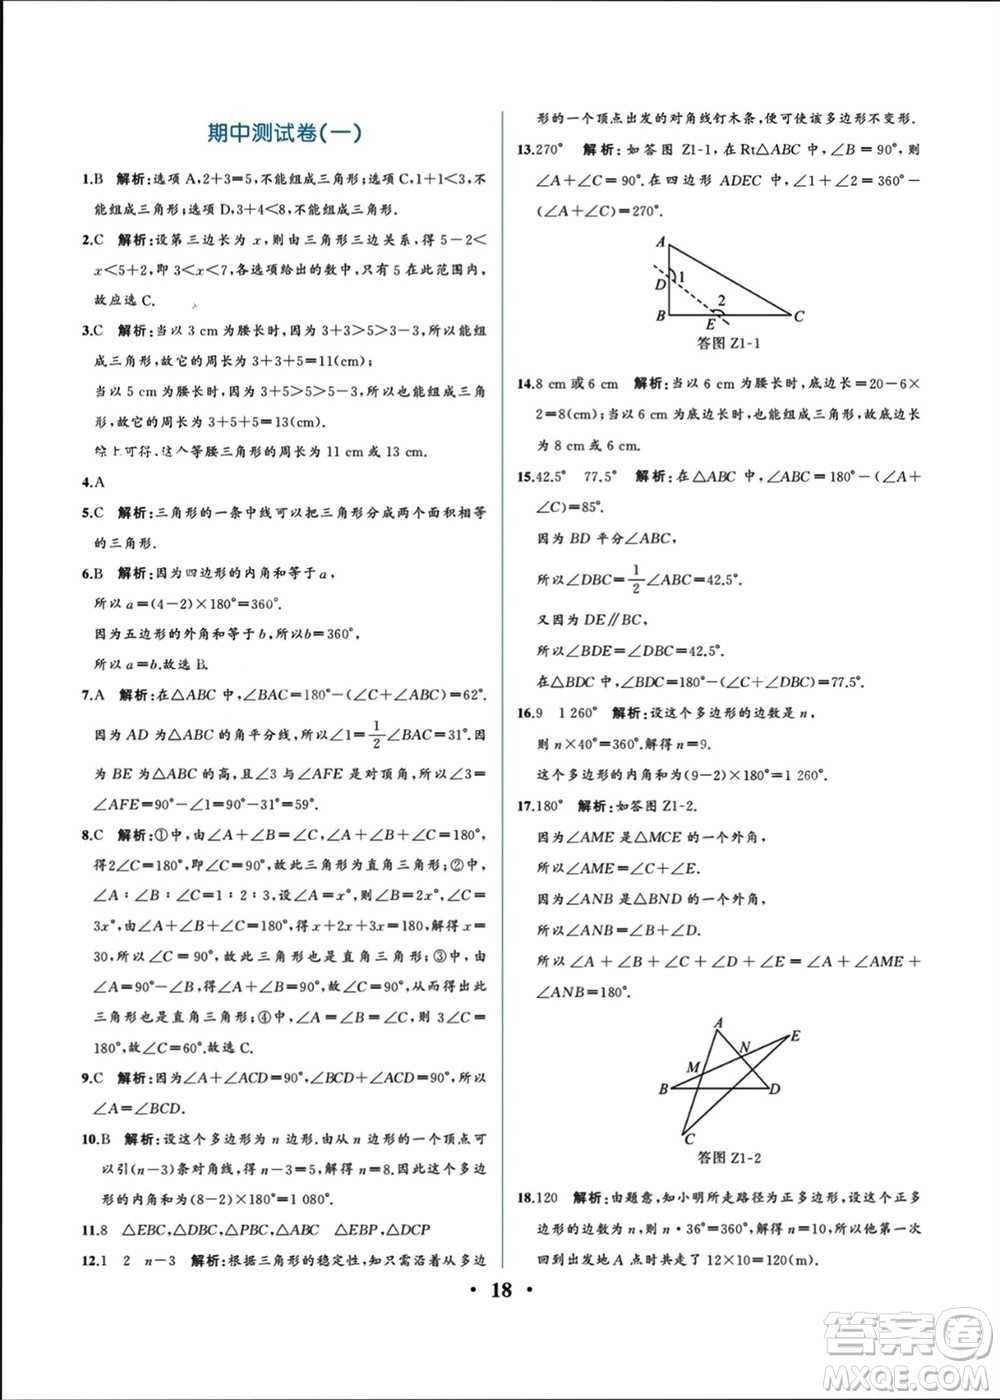 期中测试卷(一)
1.B 解析:选项 A,2+3=5,不能组成三角形;选项 C,1+1<3,不
能组成三角形;选项 D,3+4<8,不能组成三角形.
2.C 解析:设第三边长为 x,则由三角形三边关系,得 5-2<
x<5+2,即 3<x<7,各选项给出的数中,只有 5 在此范围内,
故应选 C.
3.C 解析:当以 3 cm 为腰长时,3+3>5>3-3,所以能组
成三角形,故它的周长为 3+3+5=11(cm);
当以 5 cm 为腰长时,3+5>5>5-3,所以能组成三角
形,故它的周长为 3+5+5=13(cm).
综上可得,这个等腰三角形的周长为 11 cm 或 13 cm.
4.A
5.C 解析:三角形的一条中线可以把三角形分成两个面积相等
的三角形.
6.B 解析:因为四边形的内角和等于 a,
所以 a=(4-2)×180°=360°.
因为五边形的外角和等于 b,所以 b=360°,
所以 a=b.故选 B.
7.A 解析:在△ABC 中,∠BAC=180°-(∠C+∠ABC)=62°.
因为 AD 为△ABC 的角平分线,所以∠1=1/2∠BAC=31°.因
为 BE 为△ABC 的高,且∠3 与∠AFE 是对顶角,所以∠3
=∠AFE=90°-∠1=90°-31°=59°.
8.C 解析:①中,由∠A+∠B=∠C,∠A+∠B+∠C=180°,
得2∠C=180°,即∠C=90°,故此三角形为直角三角形;②中,
∠A∶∠B∶∠C=1∶2∶3,设∠A=x°,则∠B=2x°,∠C=
3x°,由∠A+∠B+∠C=180°,得 x+2x+3x=180,解得 x=
30,所以∠C=90°,故此三角形也是直角三角形;③中,由
∠A=90°-∠B,得∠A+∠B=90°,从而得∠C=90°,所以此
三角形也是直角三角形;④中,∠A=∠B=∠C,则 3∠C=
180°,故∠C=60°.故选 C.
9.C 解析:因为∠A+∠ACD=90°,∠BCD+∠ACD=90°,所以
∠A=∠BCD.
10.B 解析:设这个多边形为 n 边形.由从 n 边形的一个顶点可
以引(n-3)条对角线,得 n-3=5,解得 n=8.因此这个多边
形的内角和为(8-2)×180°=1 080°.
11.8 △EBC,△DBC,△PBC,△ABC △EBP,△DCP
12.1 2 n-3 解析:根据三角形的稳定性,知只需沿着从多边
形的一个顶点出发的对角线钉木条,便可使该多边形不变形.
13.270° 解析:如答图 Z1-1,在 Rt△ABC 中,∠B=90°,则
∠A+∠C=90°.在四边形 ADEC 中,∠1+∠2=360°-
(∠A+∠C)=270°.
A
D
1
2
B
E
C
答图 Z1-1
14.8 cm 或 6 cm 解析:当以 6 cm 为腰长时,底边长=20-6×
2=8(cm);当以 6 cm 为底边长时,也能组成三角形.故底边长
为 8 cm 或 6 cm.
15.42.5° 77.5° 解析:在△ABC 中,∠ABC=180°-(∠A+
∠C)=85°.
因为 BD 平分∠ABC,
所以∠DBC=1/2∠ABC=42.5°.
又因为 DE∥BC,
所以∠BDE=∠DBC=42.5°.
在△BDC 中,∠BDC=180°-(∠C+∠DBC)=77.5°.
16.9 1 260° 解析:设这个多边形的边数是 n,
则 n×40°=360°.解得 n=9.
这个多边形的内角和为(9-2)×180°=1 260°.
17.180° 解析:如答图 Z1-2.
因为∠AME 是△MCE 的一个外角,
所以∠AME=∠C+∠E.
因为∠ANB 是△BND 的一个外角,
所以∠ANB=∠B+∠D.
所以∠A+∠B+∠C+∠D+∠E=∠A+∠AME+
∠ANB=180°.
A
E
N
M
B
D
C
答图 Z1-2
18.120 解析:由题意,知小明所走路径为正多边形,设这个正多
边形的边数为 n,则 n·36°=360°,解得 n=10,所以他第一次
回到出发地 A 点时共走了 12×10=120(m).
• 18 •
答案圈
MXQE.COM